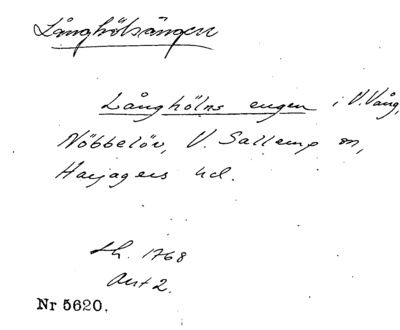 Långhölsängen
Långhölns engen i V. Vång,
Nöbbelöv, V. Sallerup sn,
Harjagers hd.
Sh. 1768
Akt 2.
Nr 5620.